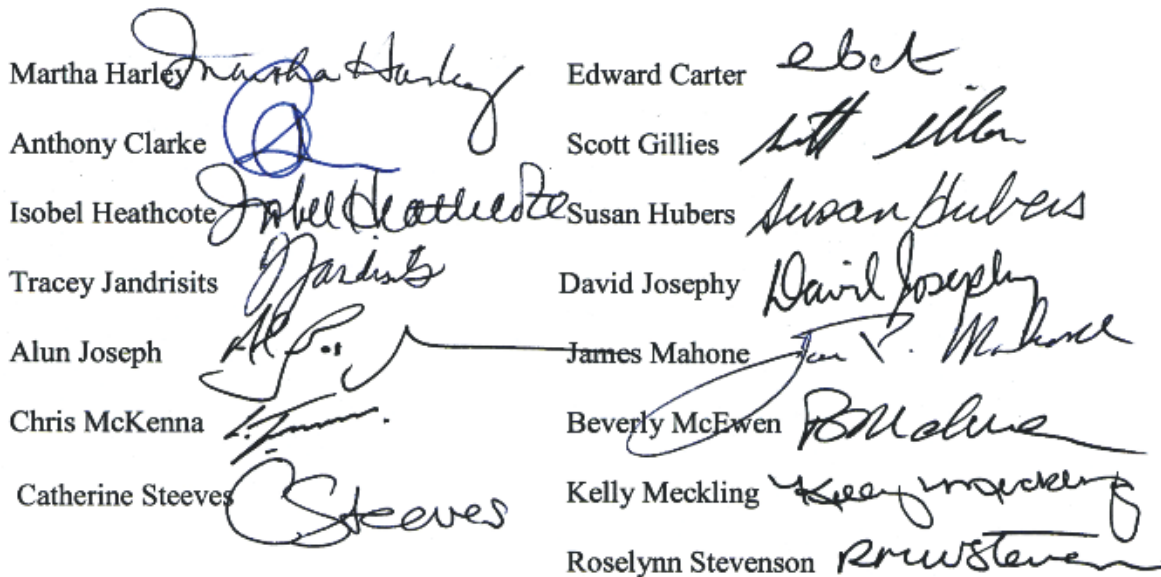 Martha Harley Martha Harley
Anthony Clarke
Isobel Heathcote Isobel Heathcote
Tracey Jandrisits Jandrisits
Alun Joseph
Chris McKenna
Catherine Steeves CSteeves
Edward Carter
Scott Gillies
Susan Hubers Susan Hubers
David Josephy David Josephy
James Mahone
Beverly McEwen
Kelly Meckling Kelly Meckling
Roselynn Stevenson